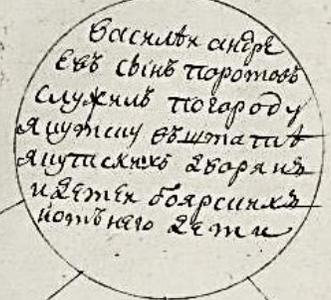 василеи андре
евъ сынъ поротовъ
служилъ погороду
якутску въштатѣ
якутскихъ дворянъ
идетеи боярскихъ
иотънего дети